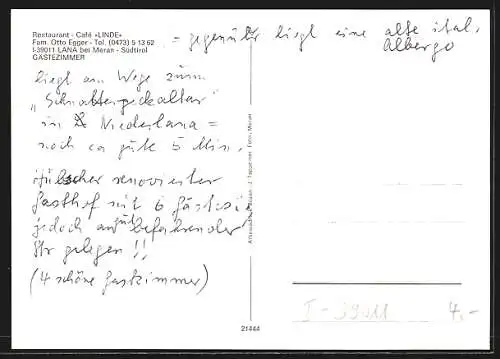 Restaurant - Café »LINDE«
Fam. Otto Egger - Tel. (0473) 5 13 62
I-39011 LANA bei Meran - Südtirol
GÄSTEZIMMER
= gegenüber liegt eine alte ital.
Albergo
liegt am Wege zum
„Schnattergeckaltar"
in Niederlana =
noch ca gute 5 Min.
hübscher renovierter
Gasthof mit 6
jedoch an gut befahrender
Str gelegen !!
(4 schöne Gastzimmer)
21444
I-39011
4.-